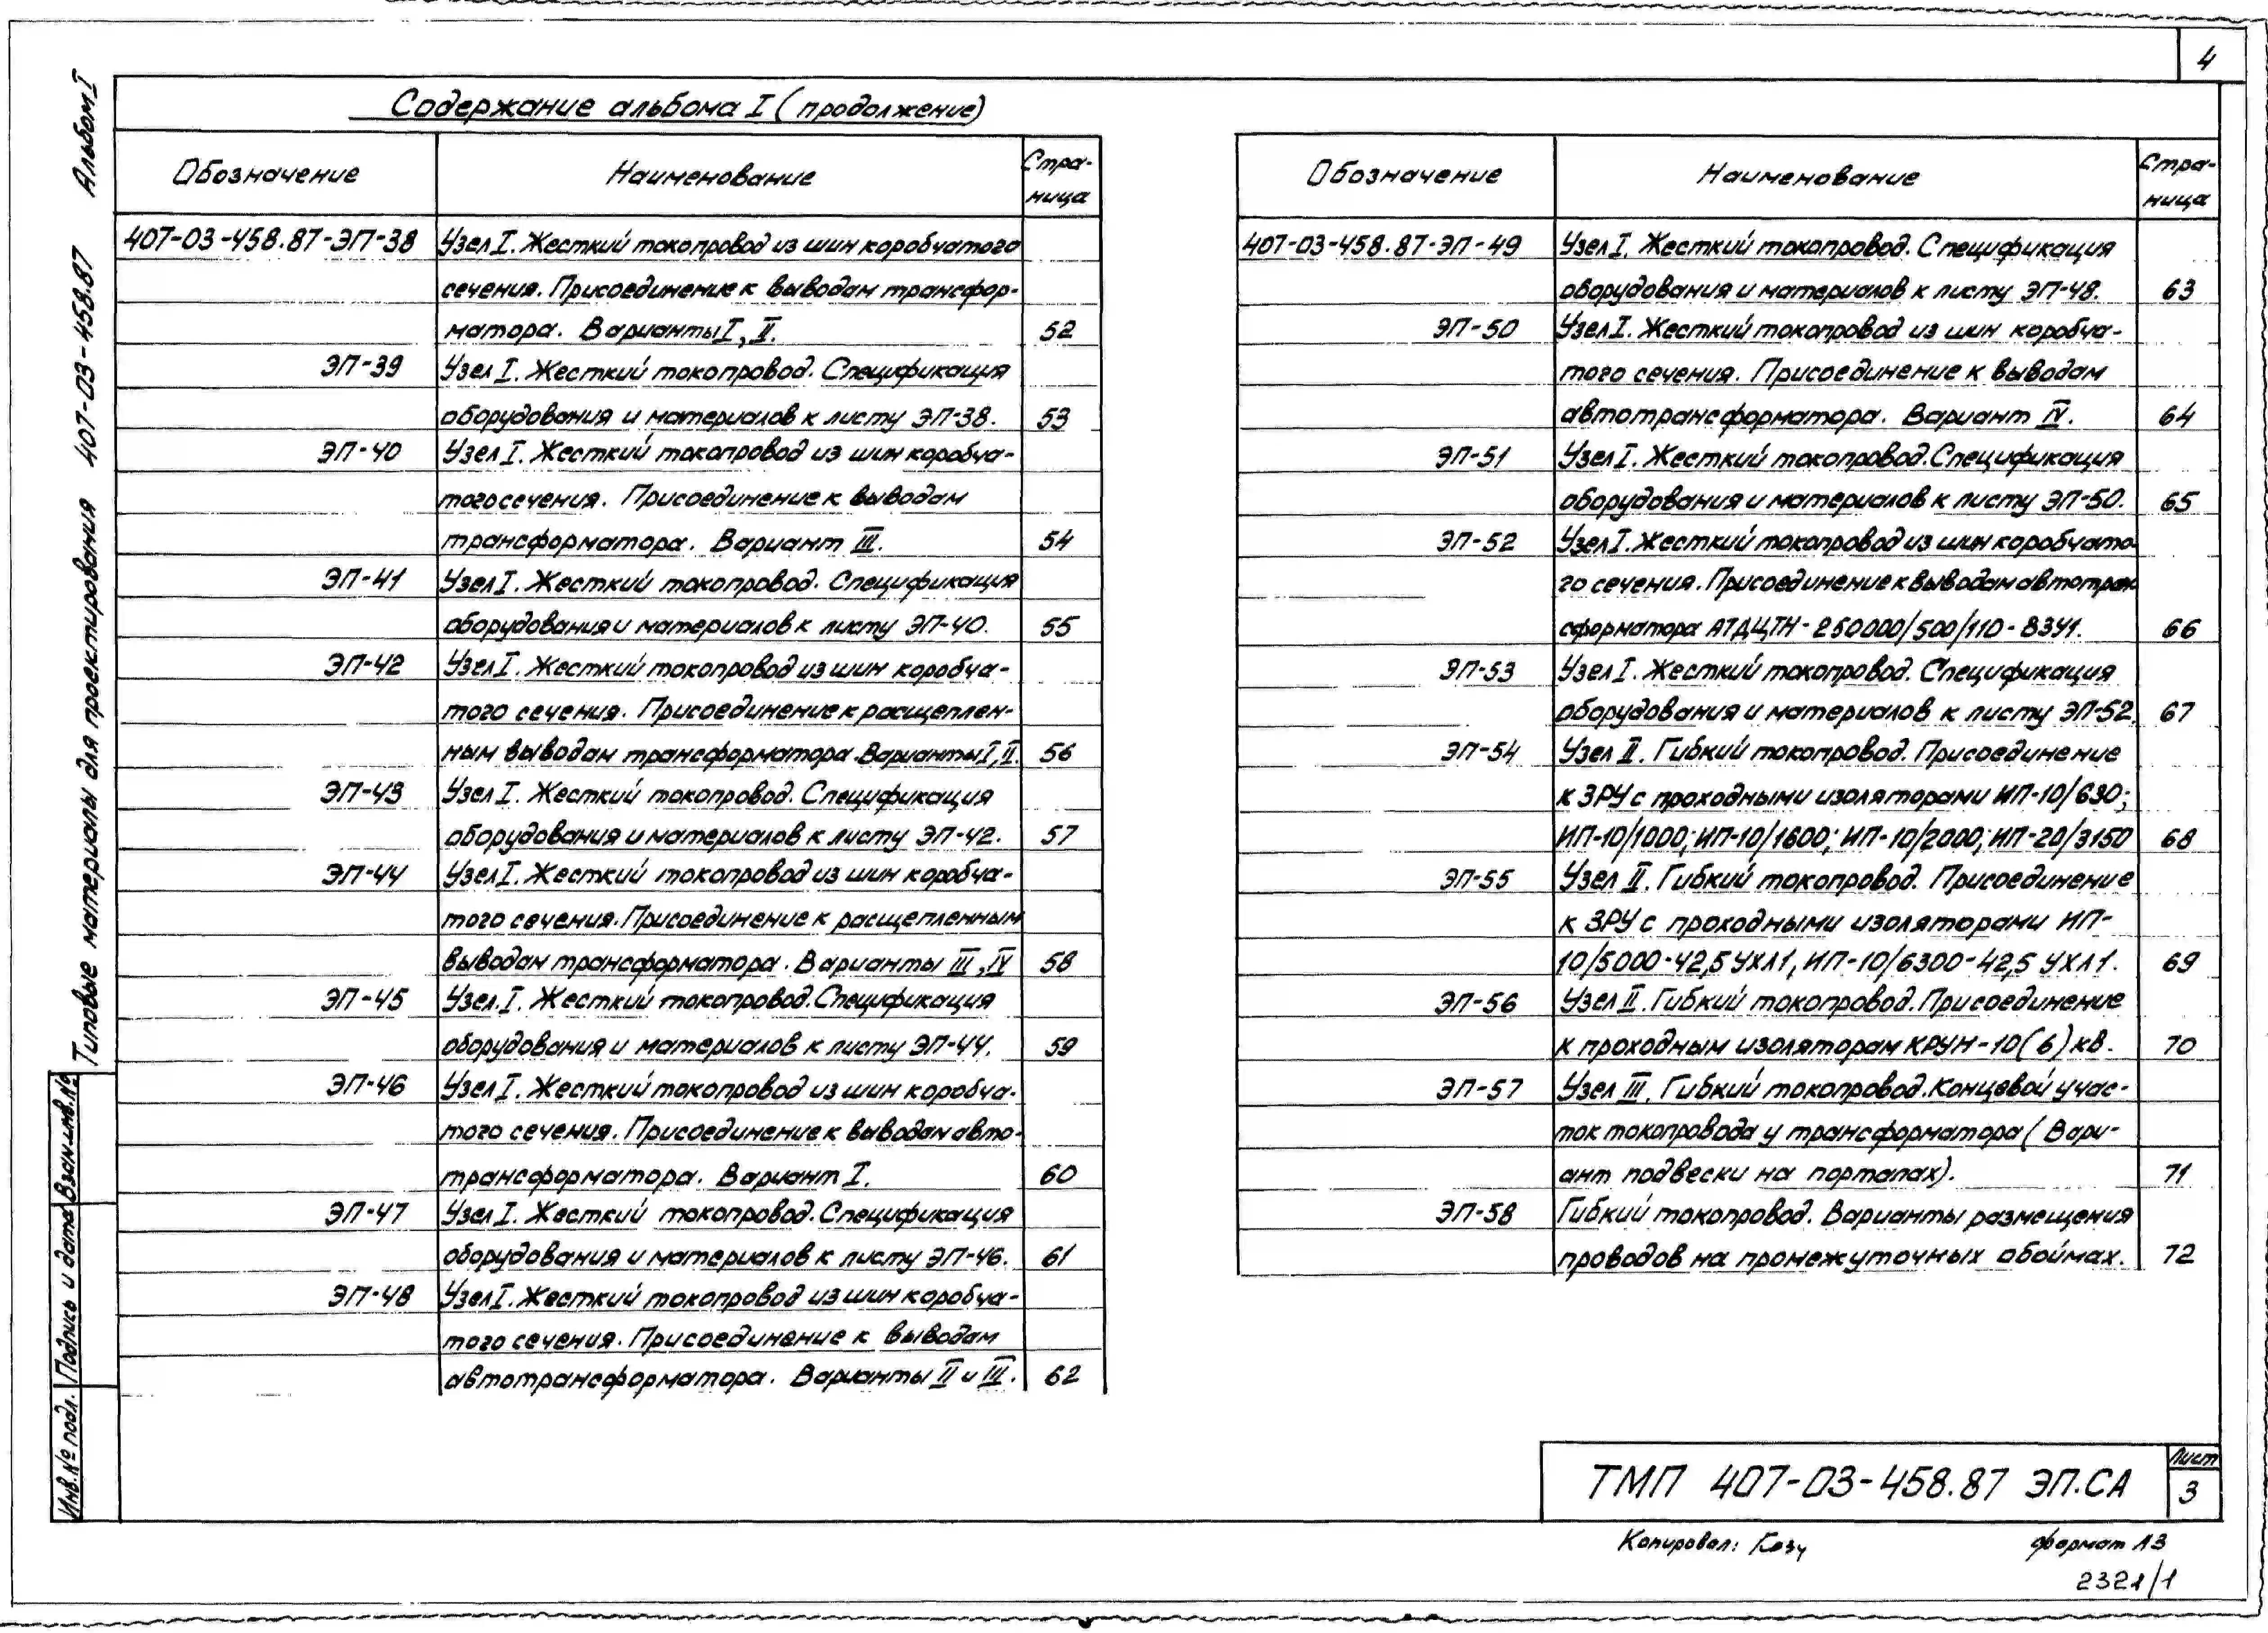 4
Содержание альбома I (продолжение)
Обозначение
Наименование
Стра-
ница
407-03-458.87-ЭП-38 Узел I. Жесткий токопровод из шин коробчатого
сечения. Присоединение к выводам трансфор-
матора. Варианты I, II. 52
ЭП-39 Узел I. Жесткий токопровод. Спецификация
оборудования и материалов к листу ЭП-38. 53
ЭП-40 Узел I. Жесткий токопровод из шин коробча-
того сечения. Присоединение к выводам
трансформатора. Вариант III. 54
ЭП-41 Узел I. Жесткий токопровод. Спецификация
оборудования и материалов к листу ЭП-40. 55
ЭП-42 Узел I. Жесткий токопровод из шин коробча-
того сечения. Присоединение к расщеплен-
ным выводам трансформатора. Варианты I, II. 56
ЭП-43 Узел I. Жесткий токопровод. Спецификация
оборудования и материалов к листу ЭП-42. 57
ЭП-44 Узел I. Жесткий токопровод из шин коробча-
того сечения. Присоединение к расщепленным
выводам трансформатора. Варианты III, IV 58
ЭП-45 Узел. I. Жесткий токопровод. Спецификация
оборудования и материалов к листу ЭП-44. 59
ЭП-46 Узел I. Жесткий токопровод из шин коробча-
того сечения. Присоединение к выводам авто-
трансформатора. Вариант I. 60
ЭП-47 Узел I. Жесткий токопровод. Спецификация
оборудования и материалов к листу ЭП-46. 61
ЭП-48 Узел I. Жесткий токопровод из шин коробча-
того сечения. Присоединение к выводам
автотрансформатора. Варианты II и III. 62
Обозначение
Наименование
Стра-
ница
407-03-458.87-ЭП-49 Узел I. Жесткий токопровод. Спецификация
оборудования и материалов к листу ЭП-48. 63
ЭП-50 Узел I. Жесткий токопровод из шин коробча-
того сечения. Присоединение к выводам
автотрансформатора. Вариант IV. 64
ЭП-51 Узел I. Жесткий токопровод. Спецификация
оборудования и материалов к листу ЭП-50. 65
ЭП-52 Узел I. Жесткий токопровод из шин коробчато-
го сечения. Присоединение к выводам автотран
сформатора АТДЦТН-250000/500/110-83У1. 66
ЭП-53 Узел I. Жесткий токопровод. Спецификация
оборудования и материалов к листу ЭП-52. 67
ЭП-54 Узел II. Гибкий токопровод. Присоединение
к ЗРУ с проходными изоляторами ИП-10/630;
ИП-10/1000; ИП-10/1600; ИП-10/2000; ИП-20/3150 68
ЭП-55 Узел II. Гибкий токопровод. Присоединение
к ЗРУ с проходными изоляторами ИП-
10/5000-42,5 УХЛ1, ИП-10/6300-42,5 УХЛ1. 69
ЭП-56 Узел II. Гибкий токопровод. Присоединение
к проходным изоляторам КРУН-10(6) кВ. 70
ЭП-57 Узел III. Гибкий токопровод. Концевой учас-
ток токопровода у трансформатора (Вари-
ант подвески на порталах). 71
ЭП-58 Гибкий токопровод. Варианты размещения
проводов на промежуточных обоймах. 72
Типовые материалы для проектирования 407-03-458.87 Альбом I
Взам.инв.№
Подпись и дата
Инв.№ подл.
ТМП 407-03-458.87 ЭП.СА
Лист
3
Копировал:
формат А3
2321/1